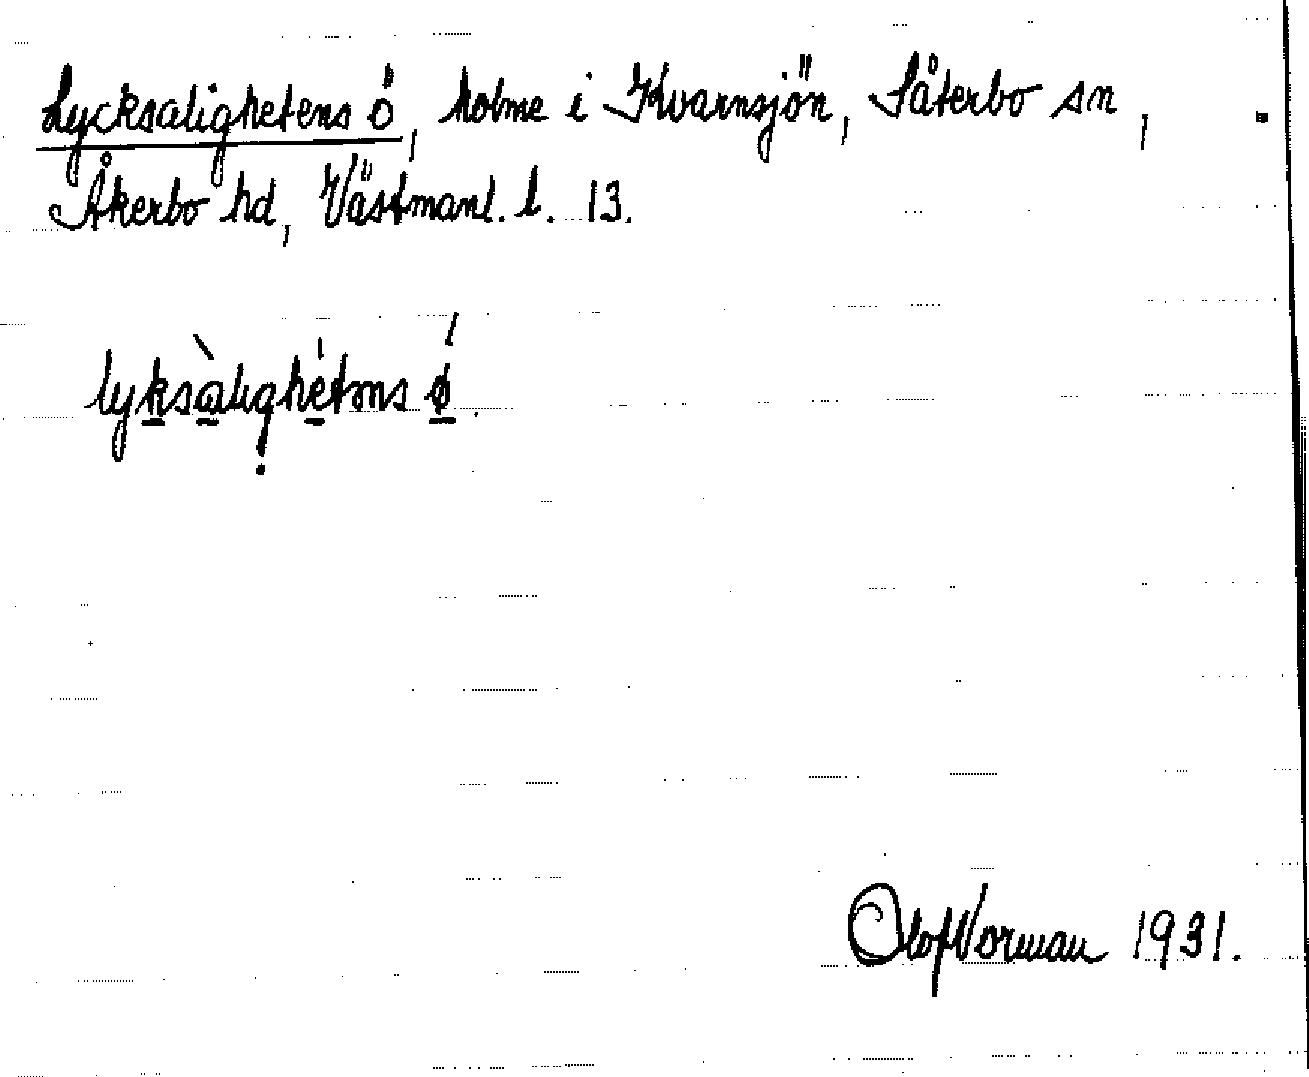 Lycksalighetens ö, holme i Kvarnsjön, Säterbo sn,
Åkerbo hd, Västmanl. l. 13.
lyksàlighetəns ǿ.
Olof Norman 1931.